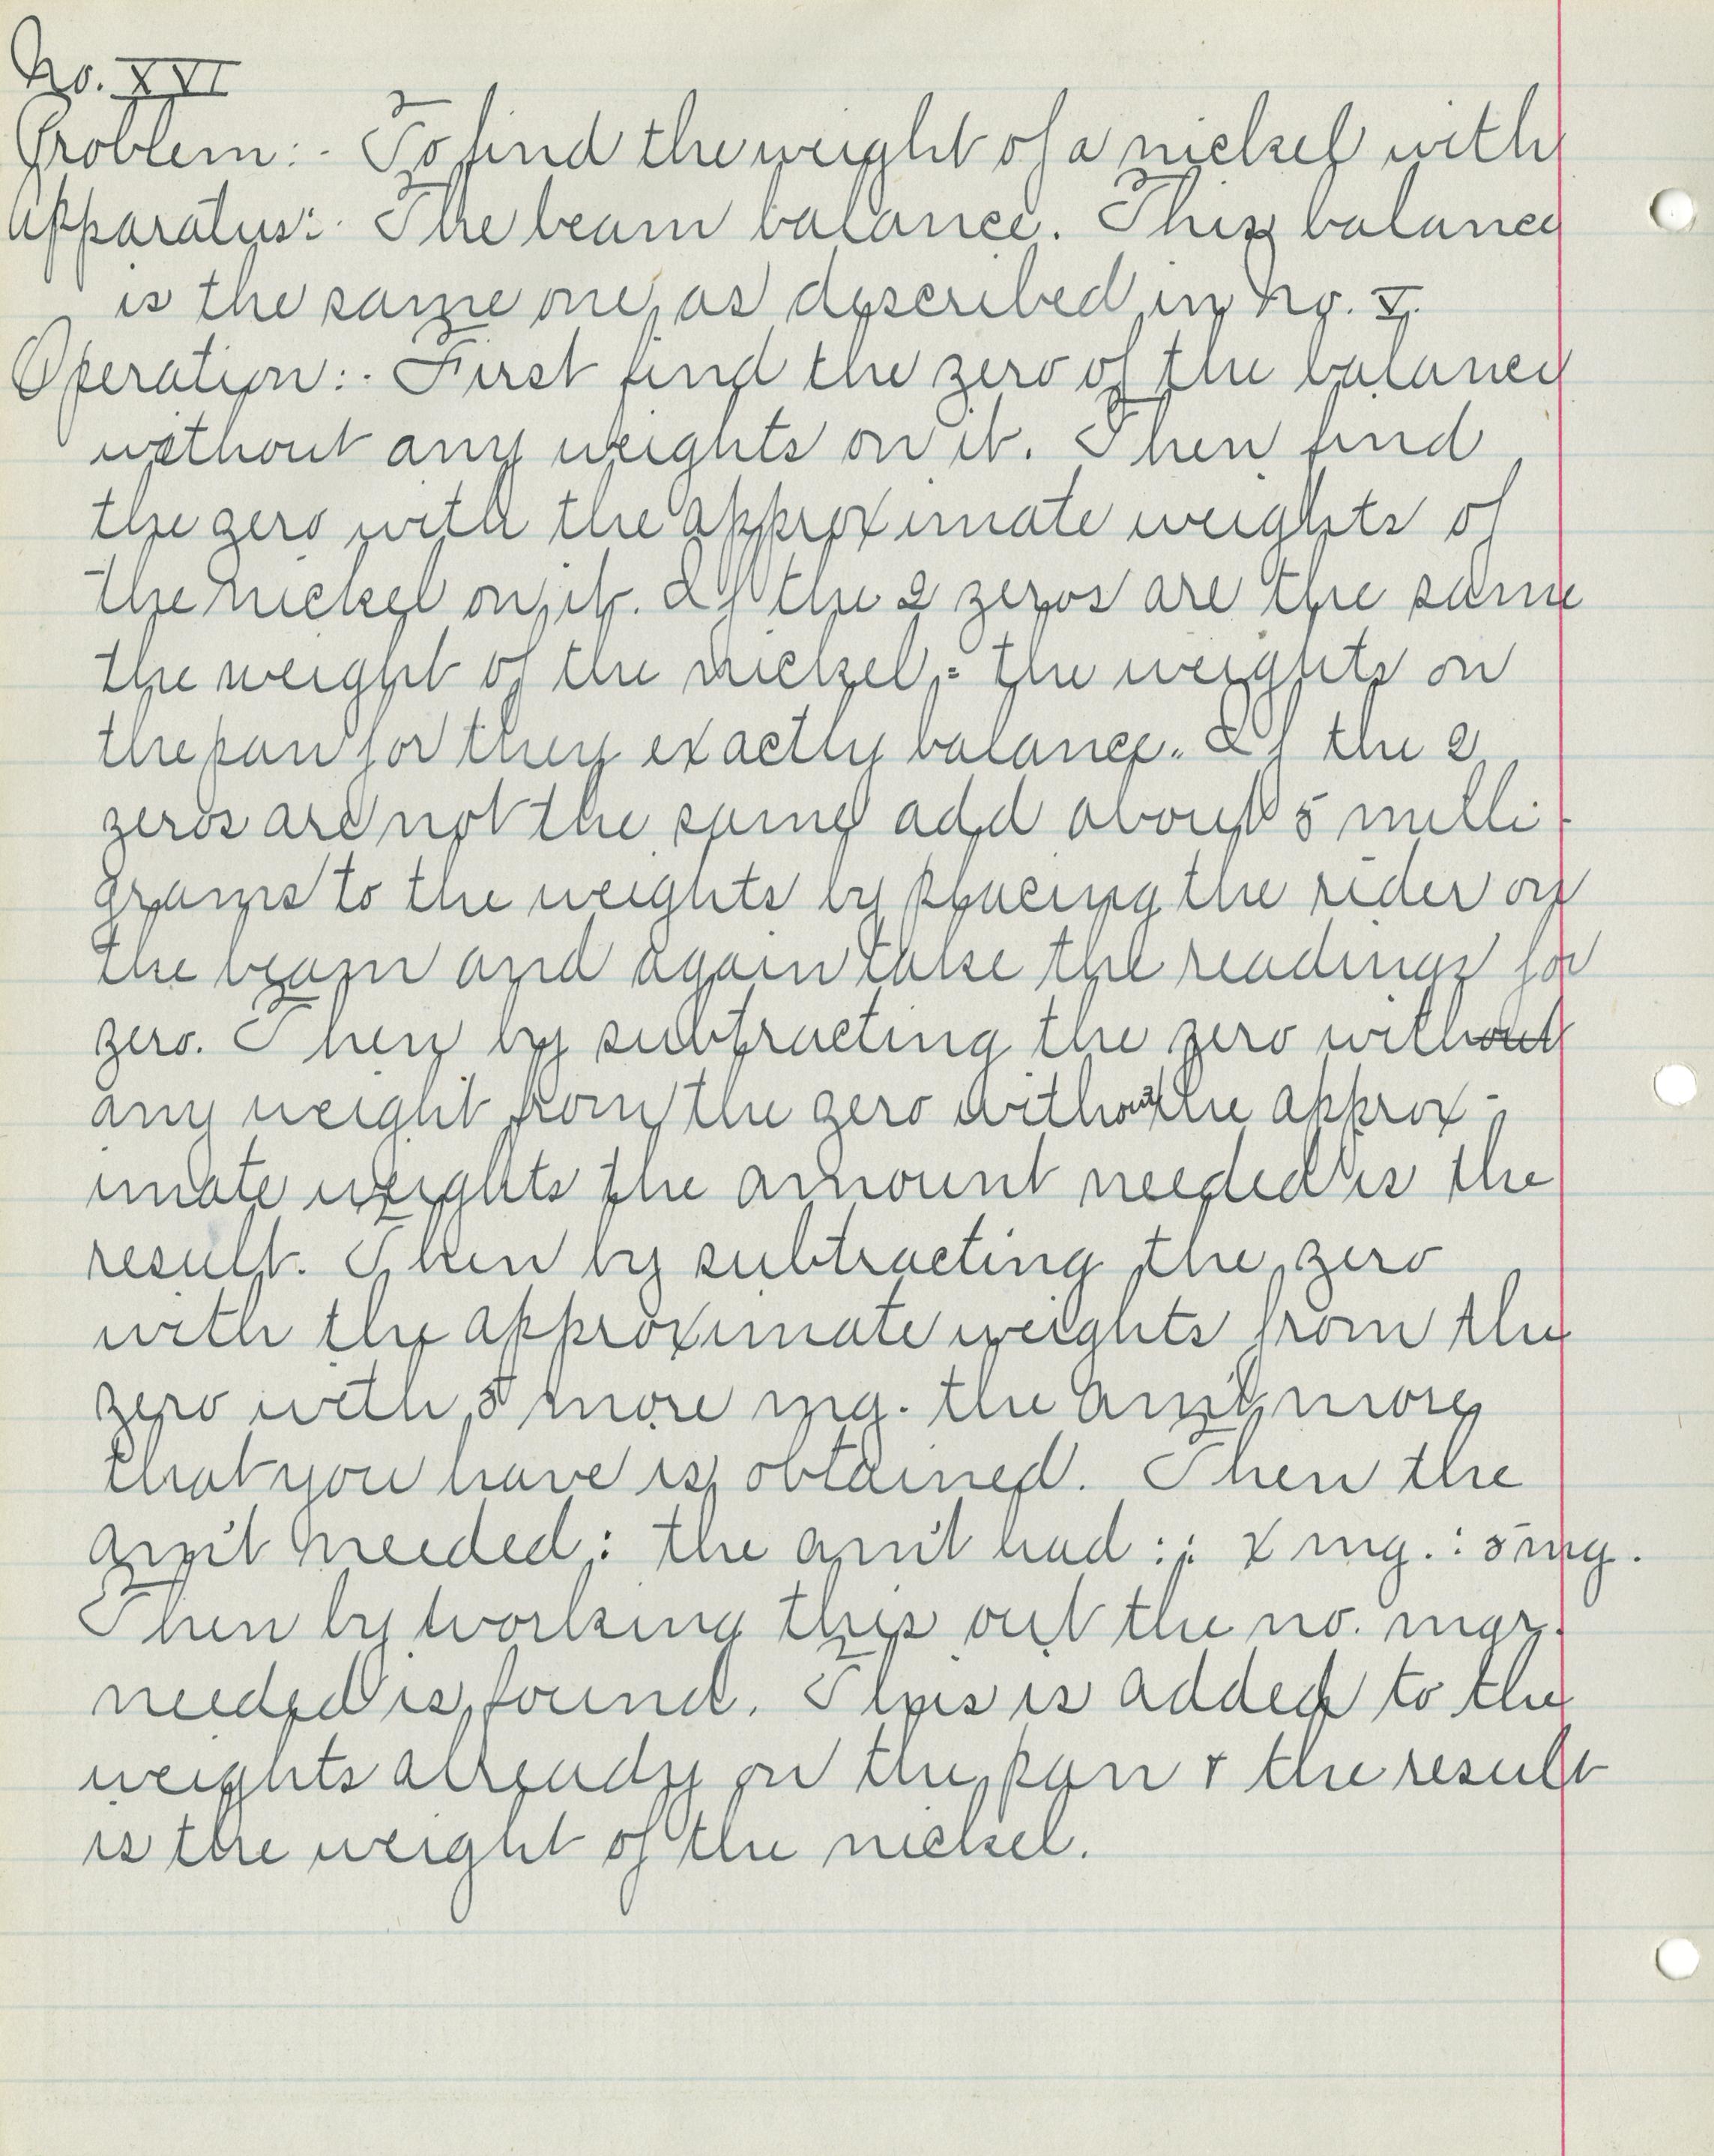 No. XVI
Problem:- To find the weight of a nickel with
Apparatus:- The beam balance. This balance
is the same one as described in No. V.
Operation:- First find the zero of the balance
without any weights on it. Then find
the zero with the approximate weights of
the nickel on it. If the 2 zeros are the same
the weight of the nickel = the weights on
the pan for they exactly balance. If the 2
zeros are not the same add about 5 milli-
grams to the weights by placing the rider on
the beam and again take the readings for
zero. Then by subtracting the zero without
any weight from the zero without the approx-
imate weights the amount needed is the
result. Then by subtracting the zero
with the approximate weights from the
zero with 5 more mg. the am't more
that you have is obtained. Then the
am't needed : the am't had :: x mg. : 5 mg.
Then by working this out the no. mgr.
needed is found. This is added to the
weights already on the pan + the result
is the weight of the nickel.